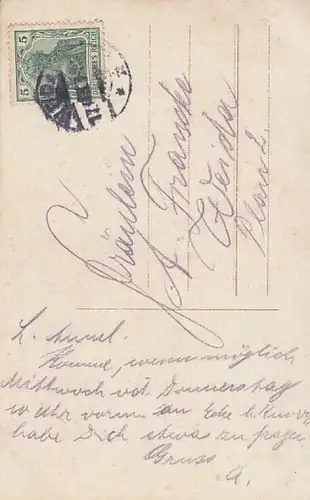 5 5
DEUTSCHES REICH
Fräulein
A. Francke
Weida
Plan 2.
L. Annel.
Komme, wenn möglich
Mittwoch od. Donnerstag
10 Uhr vorm. an Ecke b.
habe Dich etwas zu fragen.
Gruss
A.